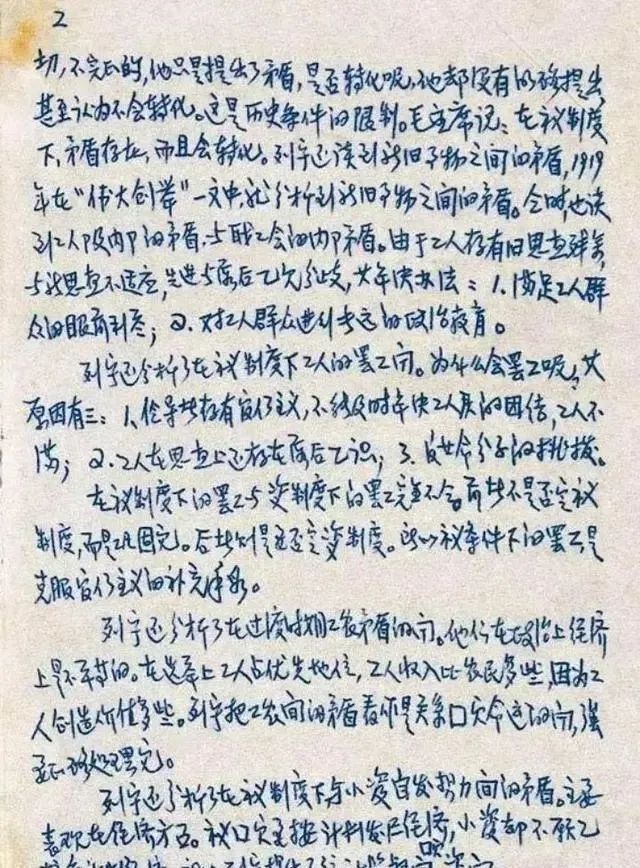 2
切,不完正的,他只是提出了矛盾,是否转化呢,他却没有明确提出,
甚至认为不会转化。这是历史条件的限制。毛主席说:在衩制度
下,矛盾存在,而且会转化。列宁还谈到新旧事物之间的矛盾,1919
年在“伟大创举”一文中,就分析到新旧事物之间的矛盾。同时,也谈
到工人阶级内部的矛盾,与职工会的内部矛盾。由于工人存有旧思想残余,
与新思想不适应,先进与落后之分歧,其解决办法:1.满足工人群
众的眼前利益;2.对工人群众进行长远的政治教育。
列宁还分析了在衩制度下工人的罢工问。为什么会罢工呢,其
原因有三:1、领导者存有官僚主义,不能及时解决工人员的团结,工人不
满;2.工人在思想上还存在落后之识;3.反革命分子的挑拨。
在衩制度下的罢工与资制度下的罢工完全不同。前者不是否定衩
制度,而是巩固它。后者则是否定资制度。所以衩条件下的罢工是
克服官僚主义的补充手段。
列宁还分析了在过渡时期工农矛盾的问。他们在政治上经济
上是不平等的。在选举上工人占优先地位,工人收入比农民多些,因为工
人创造价值多些。列宁把工农间的矛盾看作是关系口家命运的问,强
正确处理它。
列宁还分析了在衩制度下与小资自发势力间的矛盾。主要
表现在经济方面。衩口家主按计划发展经济,小资却不愿之